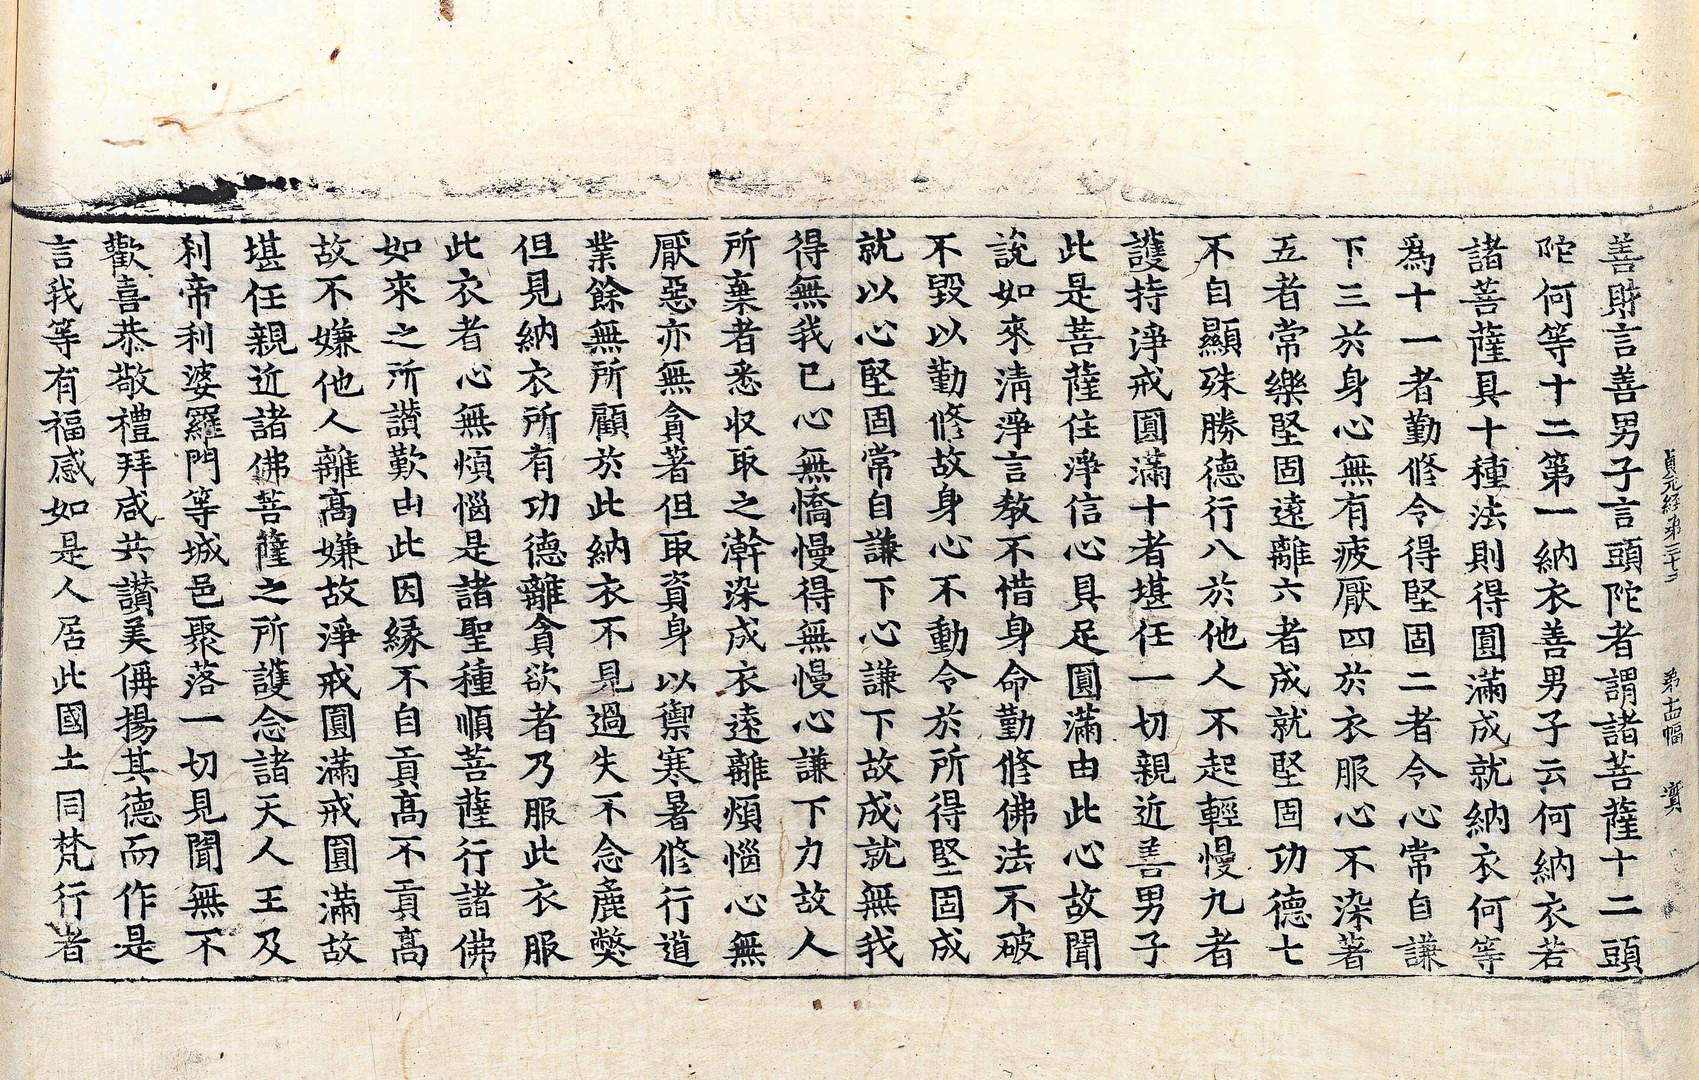 貞元經第三十三 第十四幅 實
善財言善男子言頭陀者謂諸菩薩十二頭
陀何等十二第一納衣善男子云何納衣若
諸菩薩具十種法則得圓滿成就納衣何等
爲十一者勤修令得堅固二者令心常自謙
下三於身心無有疲厭四於衣服心不染著
五者常樂堅固遠離六者成就堅固功德七
不自顯殊勝德行八於他人不起輕慢九者
護持淨戒圓滿十者堪任一切親近善男子
此是菩薩住淨信心具足圓滿由此心故聞
說如來清淨言教不惜身命勤修佛法不破
不毀以勤修故身心不動令於所得堅固成
就以心堅固常自謙下心謙下故成就無我
得無我已心無憍慢得無慢心謙下力故人
所棄者悉收取之澣染成衣遠離煩惱心無
厭惡亦無貪著但取資身以禦寒暑修行道
業餘無所顧於此納衣不見過失不念麁弊
但見納衣所有功德離貪欲者乃服此衣服
此衣者心無煩惱是諸聖種順菩薩行諸佛
如來之所讃歎由此因縁不自貢高不貢高
故不嫌他人離高嫌故淨戒圓滿戒圓滿故
堪任親近諸佛菩薩之所護念諸天人王及
刹帝利婆羅門等城邑聚落一切見聞無不
歡喜恭敬禮拜咸共讃美偁揚其德而作是
言我等有福感如是人居此國土同梵行者